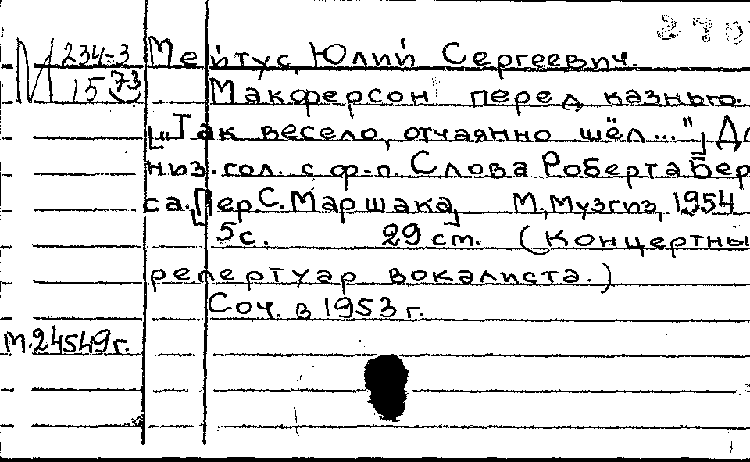 270
М 234-3 Мейтус, Юлий Сергеевич.
15 73 Макферсон перед казнью.
[„Так весело, отчаянно шёл..."] Дл
низ. гол. с ф-п. Слова Роберта Бер
са. [Пер. С. Маршака] М., Музгиз, 1954
5 с. 29 см. (Концертны
репертуар вокалиста.)
Соч. в 1953 г.
М.24549г.